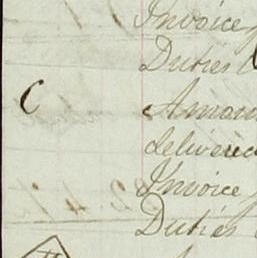 Invoice
Duties
C Amoun
delivered
Invoice
Duties